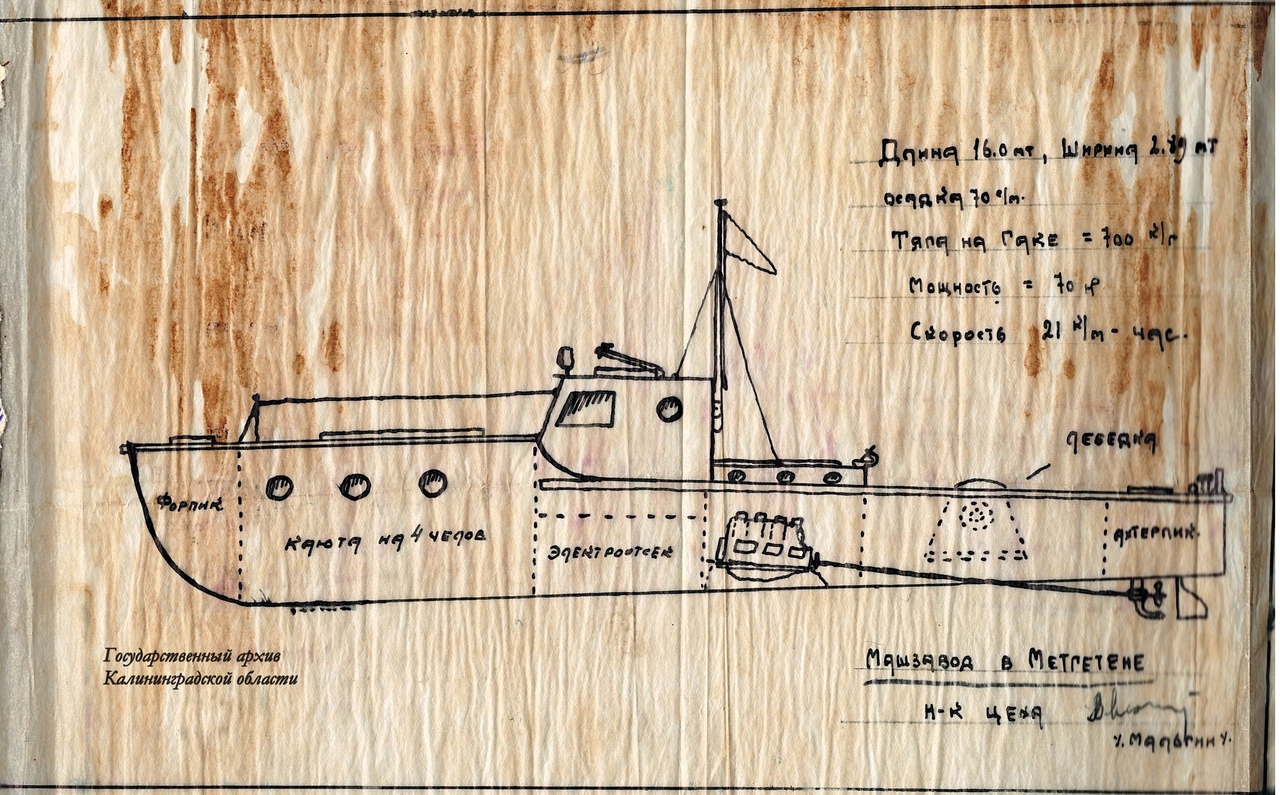 Длина 16.0 мт, Ширина 2.89 мт
осадка 70 с/м.
Тяга на гаке = 700 к/г
Мощность = 70
Скорость 21 к/м - час.
лебедка
Форпик
каюта на 4 челов
электроотсек
ахтерпик.
Государственный архив
Калининградской области
Машзавод в Метгетене
Н-к цеха
/. Малыгин /.